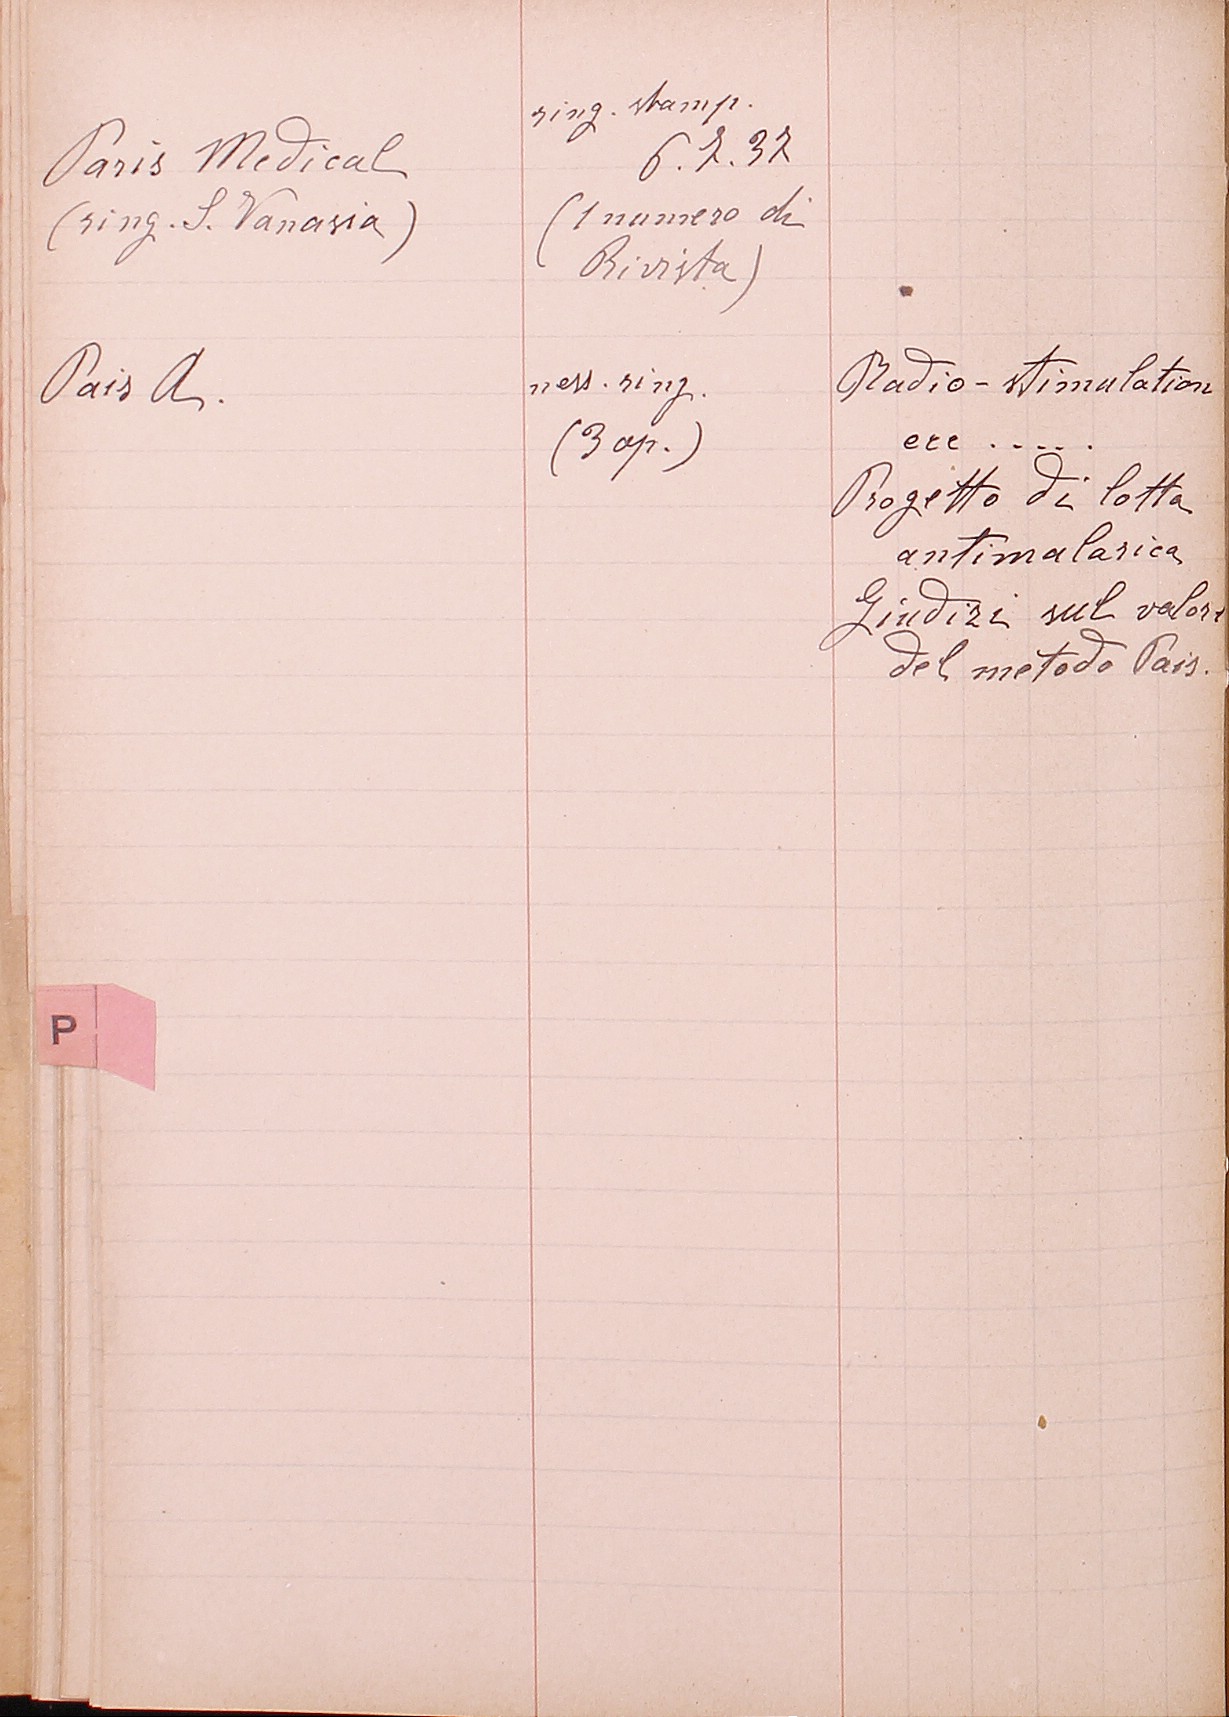 ring. stamp.
Paris Medical 6.2.32
(ring. S. Vanasia) (1 numero di
Rivista)
Pais A. ness. ring. Radio-stimulation
(3 op.) ecc .....
Progetto di lotta
antimalarica
Giudizi sul valore
del metodo Pais.
P